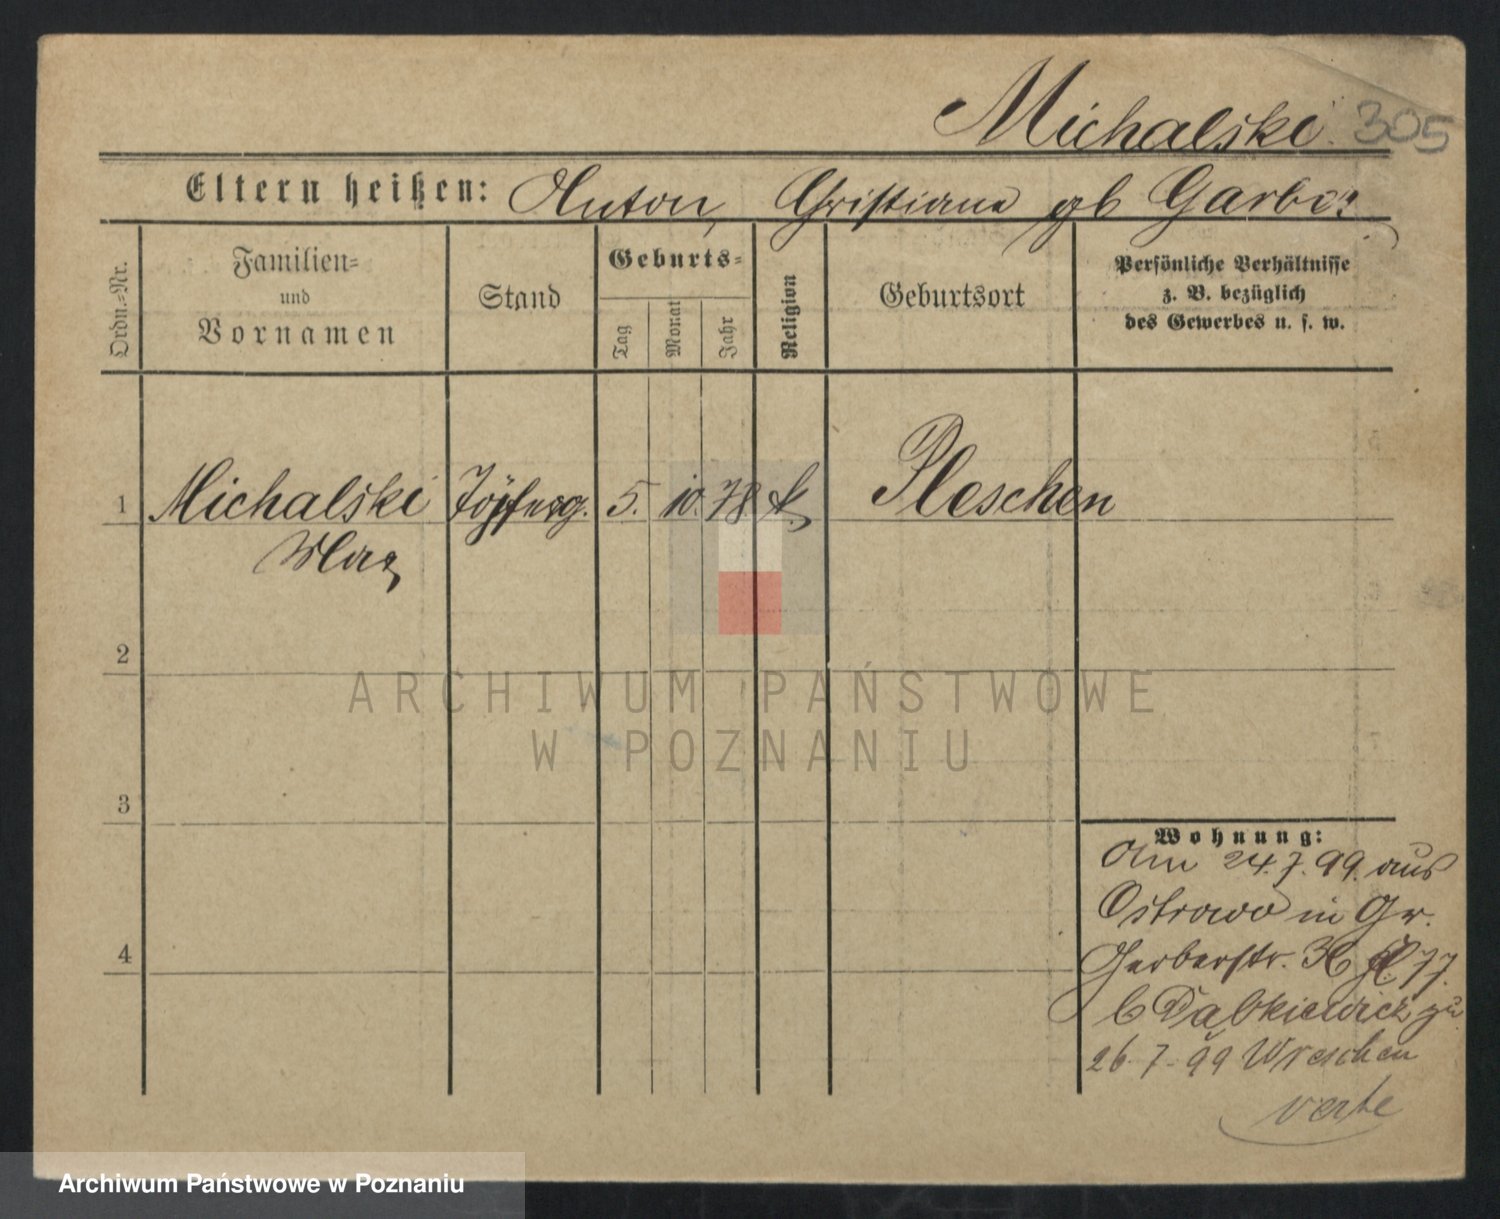 Michalski 305
Eltern heißen: Anton, Christiana gb Garber
Ordn.-Nr.
Familien-
und
Vornamen
Stand
Geburts-
Tag
Monat
Jahr
Religion
Geburtsort
Persönliche Verhältnisse
z. B. bezüglich
des Gewerbes u. s. w.
1 Michalski Töpferg. 5. 10. 78 k. Pleschen
Max
2
3
4
Wohnung:
Am 24.7.99. aus
Ostrowo in Gr.
Gerberstr. 36 77.
b Dąbkiewicz zu
26.7.99 Wreschen
verte
ARCHIWUM PAŃSTWOWE
W POZNANIU
Archiwum Państwowe w Poznaniu